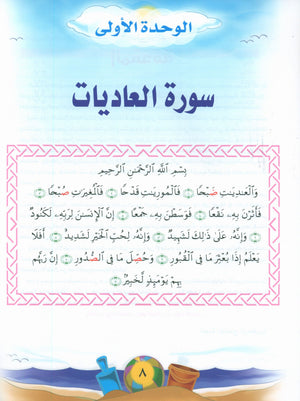 الوحدة الأولى
سورة العاديات
بِسْمِ اللَّهِ الرَّحْمَٰنِ الرَّحِيمِ
وَالْعَٰدِيَٰتِ ضَبْحًا ۝ فَالْمُورِيَٰتِ قَدْحًا ۝ فَالْمُغِيرَٰتِ صُبْحًا ۝
فَأَثَرْنَ بِهِۦ نَقْعًا ۝ فَوَسَطْنَ بِهِۦ جَمْعًا ۝ إِنَّ الْإِنسَٰنَ لِرَبِّهِۦ لَكَنُودٌ ۝
وَإِنَّهُۥ عَلَىٰ ذَٰلِكَ لَشَهِيدٌ ۝ وَإِنَّهُۥ لِحُبِّ الْخَيْرِ لَشَدِيدٌ ۝ أَفَلَا
يَعْلَمُ إِذَا بُعْثِرَ مَا فِى الْقُبُورِ ۝ وَحُصِّلَ مَا فِى الصُّدُورِ ۝ إِنَّ رَبَّهُم
بِهِمْ يَوْمَئِذٍ لَّخَبِيرٌۢ ۝
٨